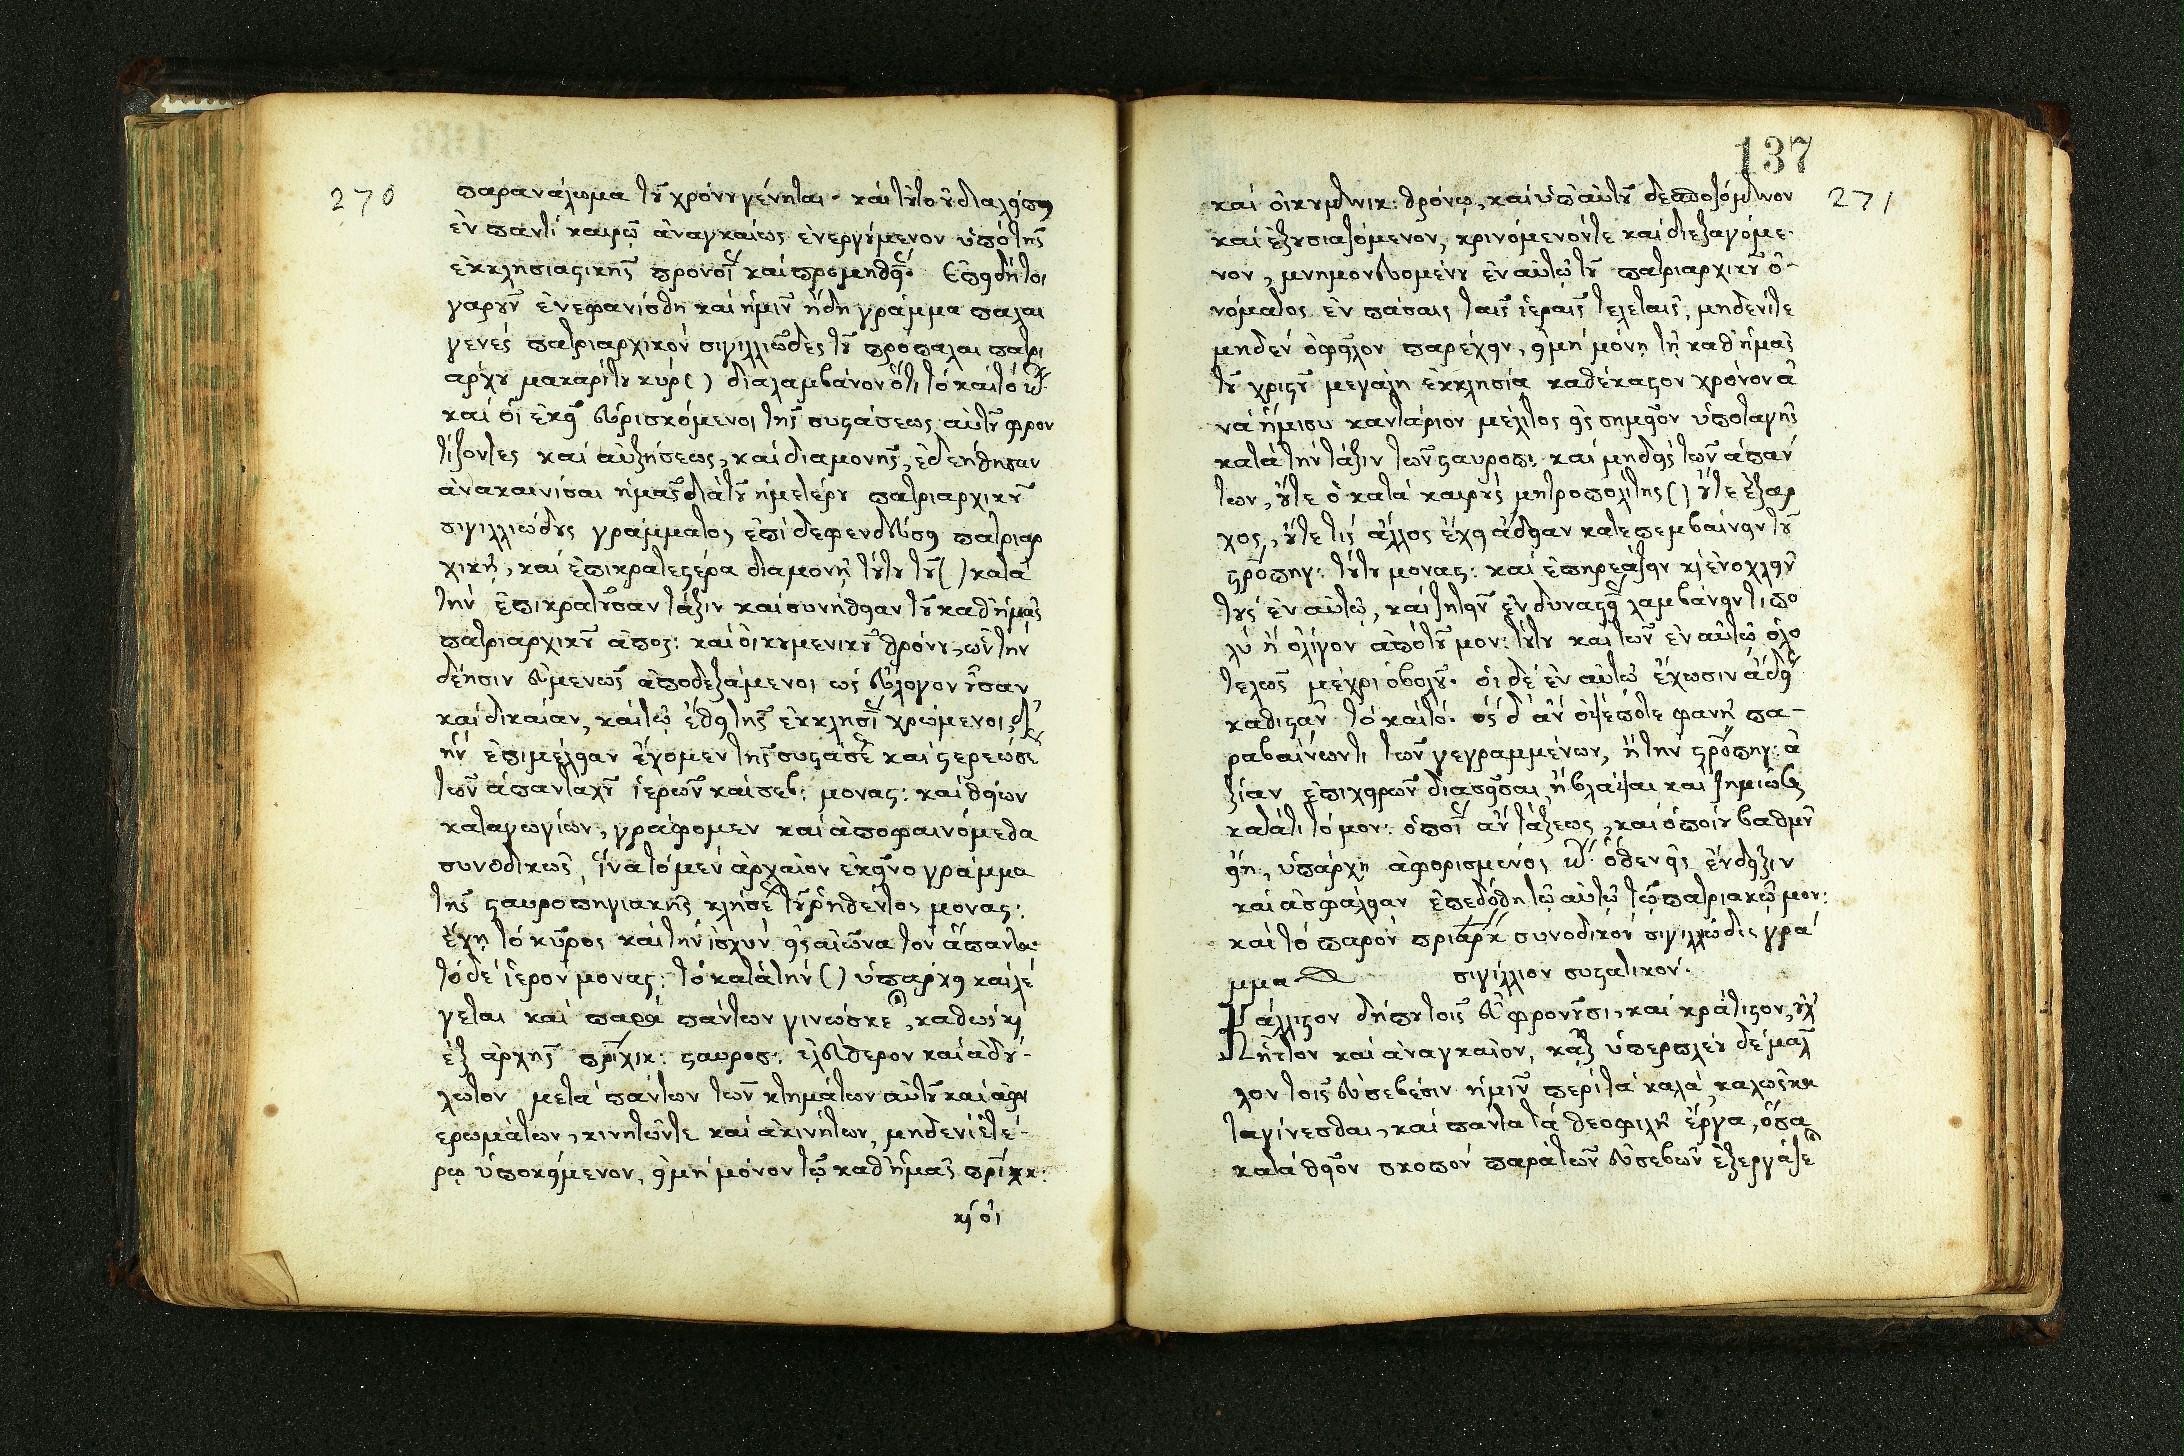 270
παρανάλωμα τοῦ χρόνου γένηται· καὶ τοῦτο οὐ διαλείπει
ἐν παντὶ καιρῷ ἀναγκαίως ἐνεργούμενον ὑπὸ τῆς
ἐκκλησιαστικῆς προνοί(ας) καὶ προμηθεί(ας). Ἐπειδή τοι
γαροῦν ἐνεφανίσθη καὶ ἡμῖν ἤδη γράμμα παλαι
γενές πατριαρχικόν σιγιλλιῶδες τοῦ πρόπαλαι πατρι
άρχου μακαρίτου κύρ( ) διαλαμβάνον ὅτι τό καὶ τό
καὶ οἱ ἐκεῖ εὑρισκόμενοι τῆς συστάσεως αὐτοῦ φρον
τίζοντες καὶ αὐξήσεως, καὶ διαμονῆς, ἐδεήθησαν
ἀνακαινίσαι ἡμᾶς διὰ τοῦ ἡμετέρου πατριαρχικοῦ
σιγιλλιώδους γράμματος ἐπὶ δεφενδεύσει πατριαρ
χικῇ, καὶ ἐπικρατεστέρᾳ διαμονῇ τούτου τοῦ ( ) κατά
τήν ἐπικρατοῦσαν τάξιν καὶ συνήθειαν τοῦ καθ' ἡμᾶς
πατριαρχικοῦ ἀποσ: καὶ οἰκουμενικοῦ θρόνου, ὧν τήν
δέησιν εὐμενῶς ἀποδεξάμενοι ὡς εὔλογον οὖσαν
καὶ δικαίαν, καὶ τῷ ἔθει τῆς ἐκκλησί(ας) χρώμενοι, δι'
ἥν ἐπιμέλειαν ἔχομεν τῆς συστάσε καὶ στερεώσε
τῶν ἁπανταχοῦ ἱερῶν καὶ σεβ: μονασ: καὶ θείων
καταγωγίων, γράφομεν καὶ ἀποφαινόμεθα
συνοδικῶς, ἵνα τό μέν ἀρχαῖον ἐκεῖνο γράμμα
τῆς σταυροπηγιακῆς κλήσε τοῦ ῥηθέντος μονασ:
ἔχῃ τό κῦρος καὶ τήν ἰσχύν εἰς αἰῶνα τόν ἅπαντα·
τό δέ ἱερόν μονασ: τό κατά τήν ( ) ὑπάρχει καὶ λέ
γεται καὶ παρά πάντων γινώσκε, καθώς κ(αὶ)
ἐξ ἀρχῆς πρχικ: σταυροπ: ἐλεύθερον καὶ ἀδού-
λωτον μετά πάντων τῶν κτημάτων αὐτοῦ καὶ ἀφι
ερωμάτων, κινητῶν τε καὶ ἀκινήτων, μηδενὶ ἑτέ-
ρῳ ὑποκείμενον, εἰ μή μόνον τῷ καθ' ἡμᾶς πρικκ:
κ(αὶ) οἰ
137
271
καὶ οἰκουμενικ: θρόνῳ, καὶ ὑπ' αὐτοῦ δεσποζόμενον
καὶ ἐξουσιαζόμενον, κρινόμενόν τε καὶ διεξαγόμε-
νον, μνημονευομένου ἐν αὐτῷ τοῦ πατριαρχικοῦ ὀ-
νόματος ἐν πάσαις ταῖς ἱεραῖς τελεταῖς, μηδενί τε
μηδέν ὀφεῖλον παρέχειν, εἰ μή μόνῃ τῇ καθ' ἡμᾶς
τοῦ χριστοῦ μεγάλῃ ἐκκλησίᾳ καθέκαστον χρόνον ἀ
νά ἥμισυ καντάριον μέλιτος εἰς σημεῖον ὑποταγῆς
κατά τήν τάξιν τῶν σταυροπ: καὶ μηδείς τῶν ἁπάν
των, οὔτε ὁ κατά καιρούς μητροπολίτης ( ) οὔτε ἔξαρ
χος, οὔτε τίς ἄλλος ἔχῃ ἄδειαν κατεπεμβαίνειν τοῦ
στροπηγ: τούτου μονασ: καὶ ἐπηρεάζειν κ(αὶ) ἐνοχλεῖν
τούς ἐν αὐτῷ, καὶ ζητεῖν ἐν δυναστεί(ᾳ) λαμβάνειν τι πο
λύ ἤ ὀλίγον ἀπό τοῦ μον: τούτου καὶ τῶν ἐν αὐτῷ ὁλο
τελῶς μέχρι ὀβολοῦ. οἱ δέ ἐν αὐτῷ ἔχωσιν ἄδει
καθιστᾶν τό καὶ τό. ὅς δ' ἄν ὀψέποτε φανῇ πα-
ραβαίνων τι τῶν γεγραμμένων, ἤ τήν στροπηγ: ἀ
ξίαν ἐπιχειρῶν διασεῖσαι, ἤ βλάψαι καὶ ζημιῶσ
κατά τι τό μον: ὁποί(ας) ἄν τάξεως, καὶ ὁποίου βαθμοῦ
εἴη, ὑπάρχῃ ἀφορισμένος ὅθεν εἰς ἔνδειξιν
καὶ ἀσφάλειαν ἐπεδόθη τῷ αὐτῷ τῷ πατριακῷ μον:
καὶ τό παρόν πριαρκ συνοδικόν σιγιλλιῶδες γρά
μμα
σιγίλλιον συστατικόν.
Κάλλιστον δήπου τοῖς εὖ φρονοῦσι, καὶ κράτιστον, οὐχ'
ἧττον καὶ ἀναγκαῖον, κἄξ ὑπερπλέου δέ μᾶλ
λον τοῖς εὐσεβέσιν ἡμῖν περί τά καλά καλῶς κα
ταγίνεσθαι, καὶ πάντα τά θεοφιλῆ ἔργα, ὅσα
κατά θεῖον σκοπόν παρά τῶν εὐσεβῶν ἐξεργάζε